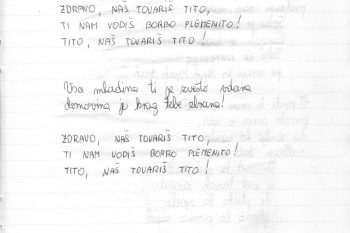 ZDRAVO, NAŠ TOVARIŠ TITO,
TI NAM VODIŠ BORBO PLEMENITO!
TITO, NAŠ TOVARIŠ TITO!
Vsa mladina ti je zvesto vdana
domovina je brez tebe
ZDRAVO, NAŠ TOVARIŠ TITO,
TI NAM VODIŠ BORBO PLEMENITO!
TITO, NAŠ TOVARIŠ TITO!